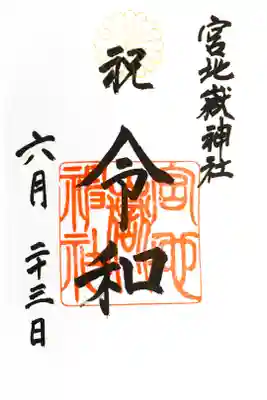 宮地嶽神社
祝
令和
六月 二十三日
宮地
嶽
神社